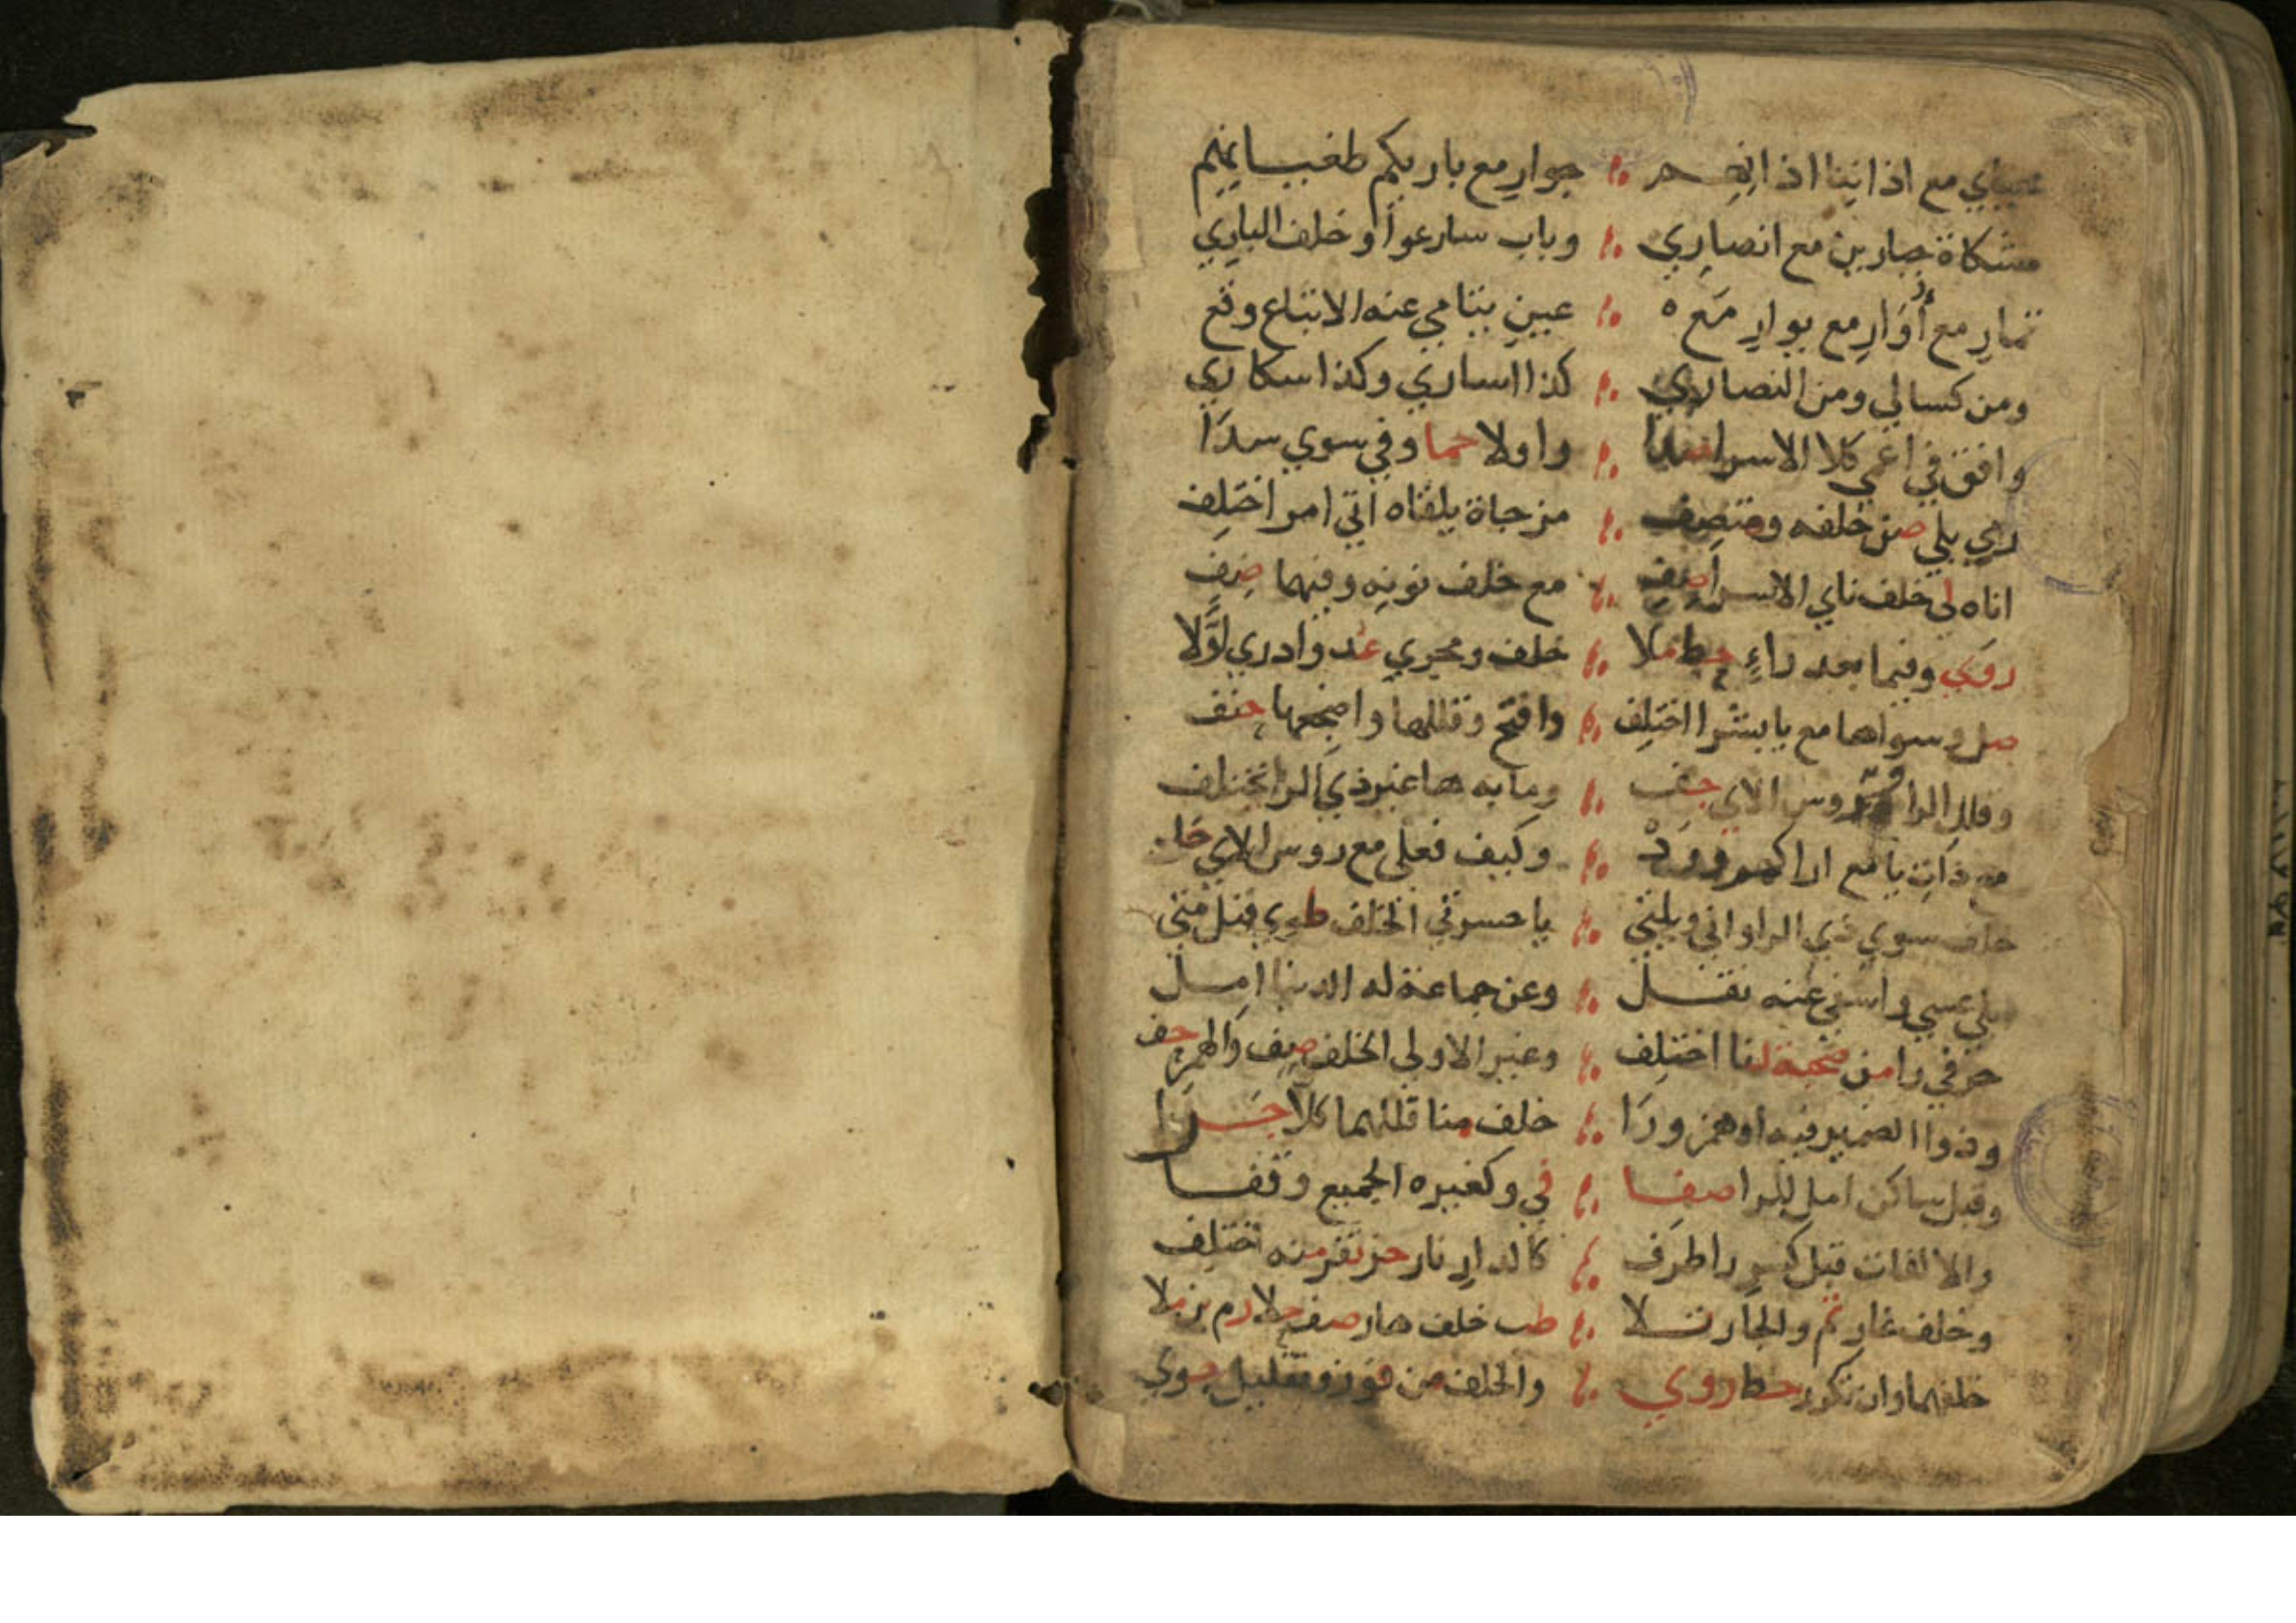 محياي مع اذاننا اذانهم جوار مع باريكم طغيانهم
مشكاة جبارين مع انصاري وباب سارعوا وخلف الباري
تمار مع أُوَارِ مع يوارِ مَع ه عين يتامى عنه الاتباع وقع
ومن كسالي ومن النصاري كذا اسارى وكذا سكاري
وافق في اعمي كلا الاسرا واولا حما وفي سوي سدَا
رمي بلي صن خلفه ومتصف مزجاة يلقاه اتي امر اختلِف
اناه لي خلف ناي الاسرا صِف مع خلف نونه وفيهما ضِف
روي وفيما بعد راءٍ حط ملا خلف ومجري عد وادري اوَّلا
صل وسواها مع يا بشرا اختلِف وافتح وقللها واضجعها حتف
وقلل الرا وروس الاي جف وما به ها غير ذي الرا يختلف
مع ذات يا مع اراكهمو ورد وكيف فعلى مع روس الاي حد
خلف سوي ذي الرا واني ويلتي يا حسرتي الخلف طوي قيل متي
بلي عسي واسفي عنه نقل وعن جماعة له الدنيا امِل
حرفي را من صحبة لنا اختلِف وغير الاولي الخلف صِف والهمز حف
وذوا الضمير فيه او همز ورَا خلف منا قللهما كلا جرَا
وقبل ساكن امل للرا صفا في وكغيره الجميع وقفا
والالفات قبل كسرِ را طرَف كالدارِ نار حز تفز منه اختلِف
وخلف غار تم والجار تلا طب خلف هار صف حلا رم بن ملا
خلفهما وان تكرر حط روي والخلف من فوز وتقليل جوي